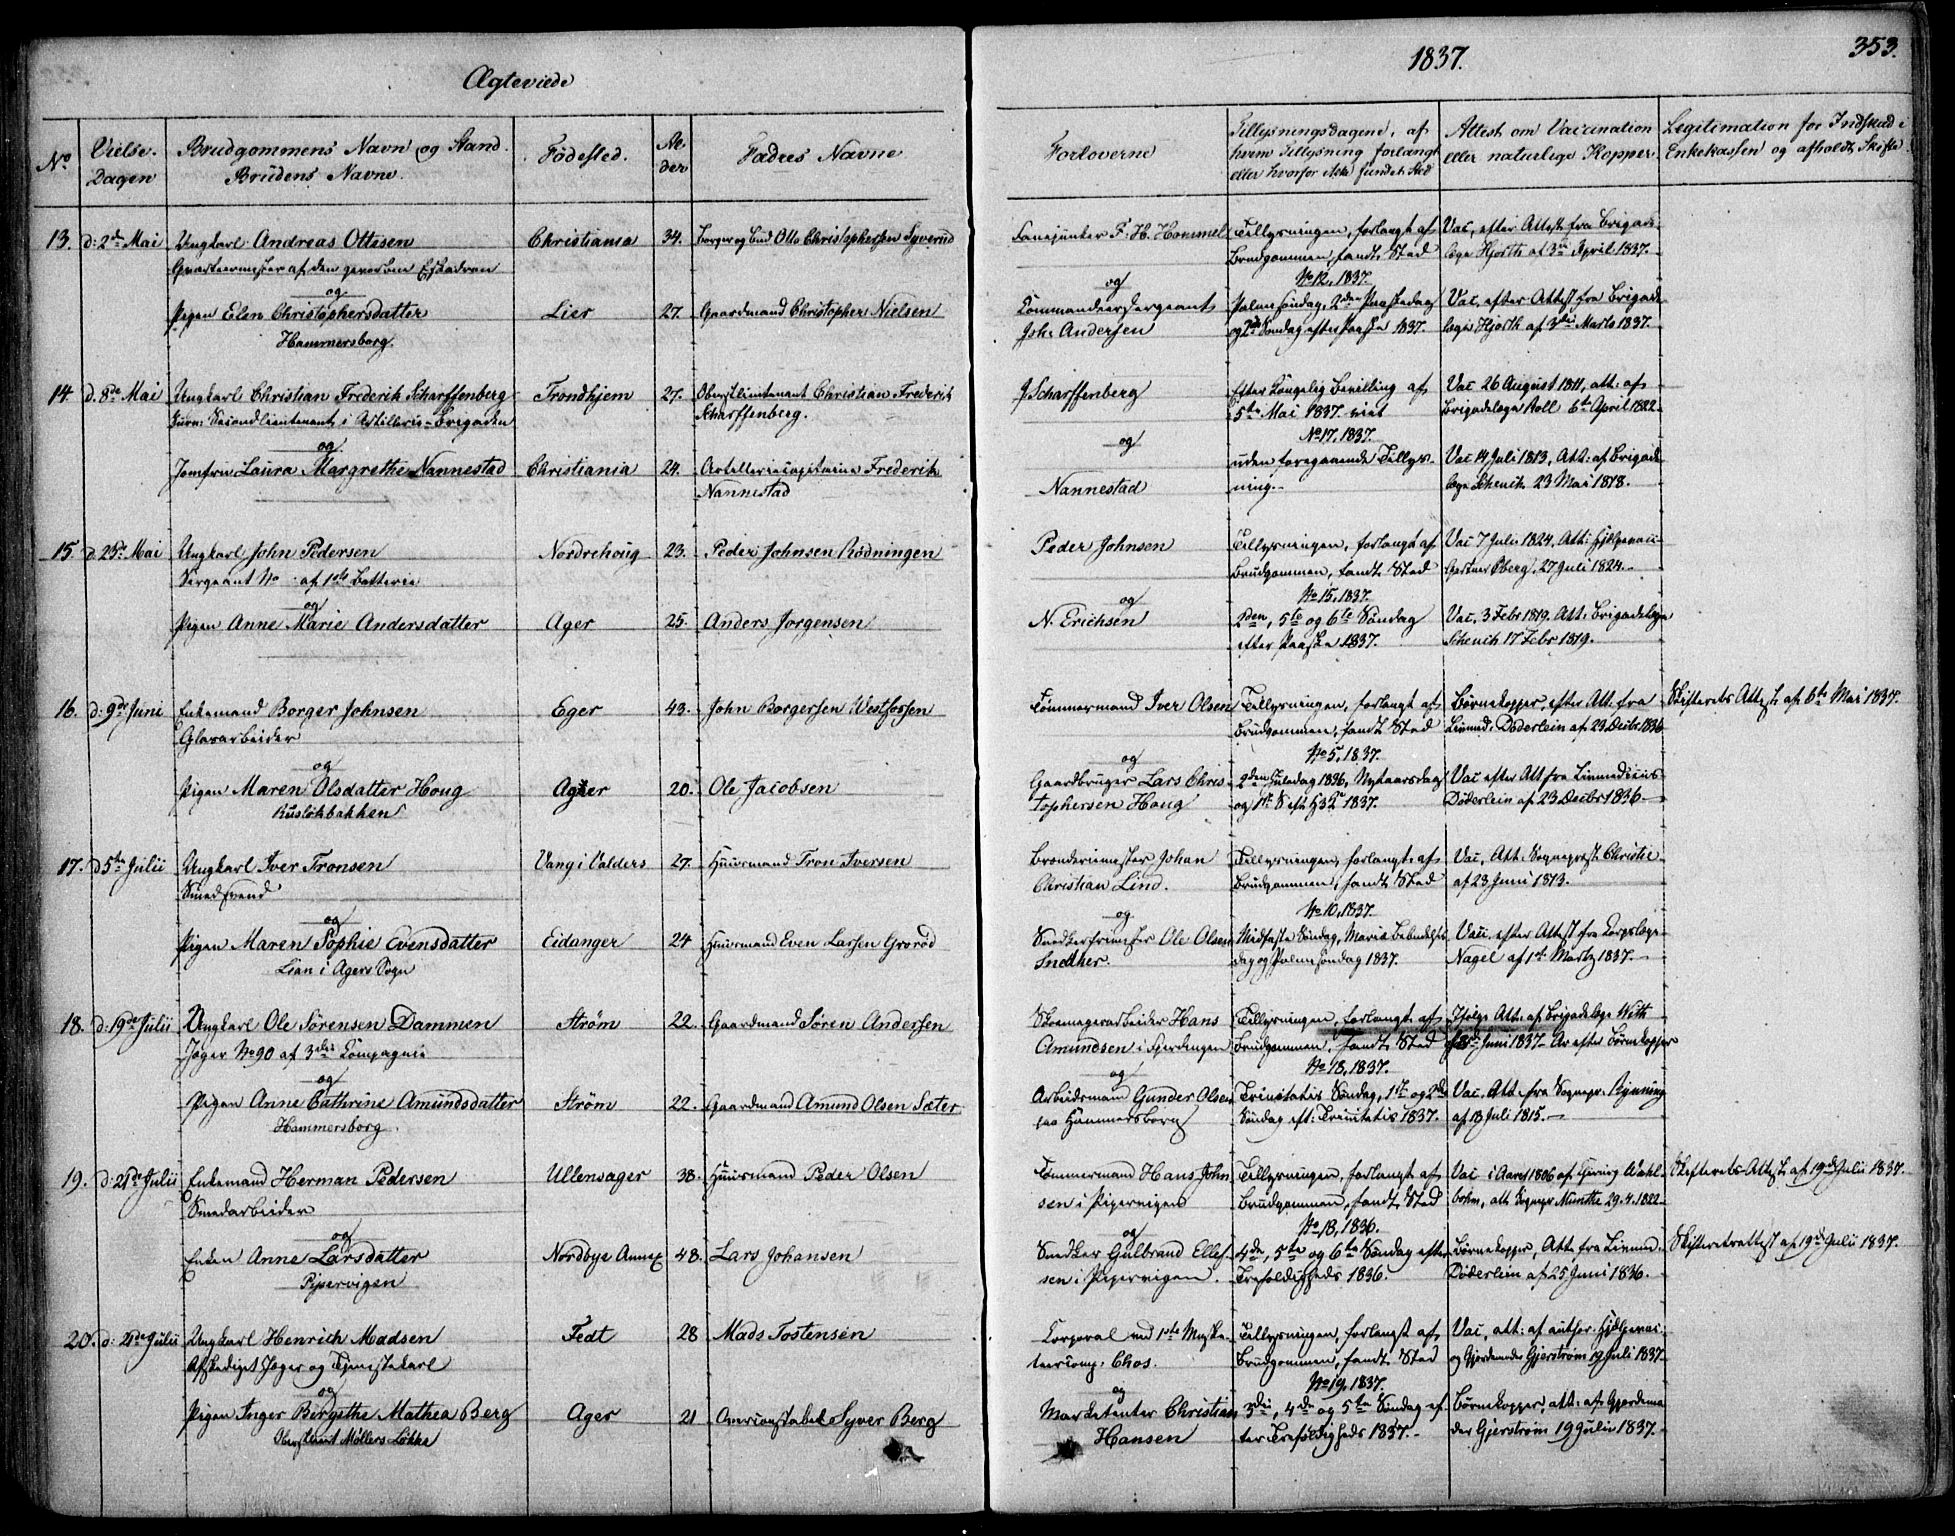 Ægteviede
1837.
353.
No
Vielse-Dagen
Brudgommens Navn og Stand.
Brudens Navne.
Fødested.
Alder
Fædres Navne
Forloverne
Tillysningsdagene, af hvem Tillysning forlangt eller hvorfor ikke fundet Sted
Attest om Vaccination eller naturlige Kopper
Legitimation for Indskud i Enkekassen og afholdt Skifte
13. d: 2den Mai Ungkarl Andreas Ottesen Christiania 34. Otto Christophersen Syverud
Qvarteermester af den gevorbne Eskadron
og
Pigen Elen Christophersdatter Lier 27. Gaardmand Christopher Nielsen
Hammersborg.
F. H. Hommel
og
Kommandeersergeant
Joh: Andersen
Tillysningen, forlangt af
Brudgommen, fandt Sted
No 12, 1837.
Palmesøndag, 2den Paaskedag
og 2den Søndag efter Paaske 1837.
Vac, efter Attest fra Brigade-
læge Hjorth af 3die April 1837.
Vac, efter Attest fra Brigade
læge Hjorth af 3die Marts 1837.
14 d. 8de Mai Ungkarl Christian Frederik Scharffenberg Trondhjem 27. Oberstlieutenant Christian Frederik
Scharffenberg.
Secondlieutenant i Artillerie-Brigaden
og
Jomfrue Laura Margrethe Nannestad Christiania 24. Artilleriecapitaine Frederik
Nannestad
Scharffenberg
og
Nannestad
Efter Kongelig Bevilling af
5te Mai 1837 viet
No 17, 1837.
uden foregaaende Tillys-
ning.
Vac 26 August 1811, att: af
Brigadelæge Aoll 6te April 1822
Vac 14 Juli 1813, Att: af Brigade
læge Schenck 23 Mai 1818.
15. d. 25de Mai Ungkarl John Pedersen Nordrehoug 23. Peder Johnsen Rødningen
Sergeant No af 1ste Batterie
og
Pigen Anne Marie Andersdatter Ager 25. Anders Jørgensen
Peder Johnsen
og
N. Erichsen
Tillysningen, forlangt af
Brudgommen, fandt Sted
No 15, 1837.
2den, 5te og 6te Søndag
efter Paaske 1837.
Vac 7 Juli 1824, Att: Hjelpevac-
Øberg, 27 Juli 1824.
Vac, 3 Febr 1819, Att: Brigadelæge
Schenck 17 Febr 1819.
16. d: 9de Juni Enkemand Borger Johnsen Eger 43. John Borgersen Westfossen
Glasarbeider
og
Pigen Maren Olsdatter Houg Ager 20. Ole Jacobsen
Rusløkbakken
Tømmermand Iver Olsen
og
Gaardbruger Lars Chris-
tophersen Houg
Tillysningen, forlangt af
Brudgommen, fandt Sted
No 5, 1837.
2den Juledag 1836, Nytaarsdag
og 1ste S. eft. H3K 1837.
Børnekopper, efter Att. fra
Døderlein af 23 Decbr 1836
Vac efter Att fra
Døderlein af 23 Decbr 1836
Skifterets Attest af 6te Mai 1837.
17. d 5te Julii Ungkarl Iver Tronsen Vang i Valders 27. Huusmand Tron Iversen
Smedsvend
og
Pigen Maren Sophie Evensdatter Eidanger 24 Huusmand Even Larsen Grorød
Lian i Agers Sogn
Johan
Christian Lind.
og
Ole Olsen
Snedker.
Tillysningen, forlangt af
Brudgommen, fandt Sted
No 10, 1837.
Midfaste Søndag, Mariæ Bebudelses
dag og Palmesøndag 1837.
Vac, Att. Sognepræst Christie
af 23 Juni 1813.
Vac, efter Attest fra Corpslæge
Nagel af 1ste Marts 1837.
18. d: 19de Julii Ungkarl Ole Sørensen Dammen Strøm 22. Gaardmand Søren Andersen
Jæger No 90 af 3die Kompagnie
og
Pigen Anne Cathrine Amundsdatter Strøm 22. Gaardmand Amund Olsen Sæter
Hammersborg.
Skomagerarbeider Hans
Amundsen i Fjerdingen
og
Arbeidsmand Gunder Olsen
paa Hammersborg
Tillysningen, forlangt af
Brudgommen, fandt Sted
No 18, 1837.
Trinitatis Søndag, 1ste og 2den
Søndag eft: Trinitatis 1837.
Ifølge Att: af Brigadelæge With
Juni 1837 Ar efter Børnekopper
Vac, Att: fra Sognepr: Bynning
af 13 Juli 1815.
19. d: 21de Julii Enkemand Herman Pedersen Ullensager 38. Huusmand Peder Olsen
Smedarbeider
og
Enken Anne Larsdatter Nordbye Annex 48. Lars Johansen
Pipervigen
Tømmermand Hans John
sen i Pipervigen
og
Snedker Gulbrand Ellef-
sen i Pipervigen.
Tillysningen, forlangt af
Brudgommen, fandt Sted
No 13, 1836.
4de, 5te og 6te Søndag efter
Trefoldigheds 1836.
Vac i Aaret 1806 af Chirurg Wahl-
bohm, att Sognepr Munthe 29.4.1822
Børnekopper, Att. fra
Døderlein af 25 Juni 1836.
Skifterets Attest af 19de Julii 1837.
Skifteretsattest af 19de Julii 1837.
20. d: 21de Julii Ungkarl Henrich Madsen Fedt 28 Mads Tostensen
Afskediget Jæger og Tjenestekarl
og
Pigen Inger Birgithe Mathea Berg Ager 21 Syver Berg
Oberstlieut Møllers Løkke
Corporal ved 1ste Muske-
teercomp: Chos.
og
Marketenter Christian
Hansen
Tillysningen, forlangt af
Brudgommen, fandt Sted
No 19, 1837.
3die, 4de og 5te Søndag ef
ter Trefoldigheds 1837.
Vac, att: af author. Hjelpevac.
og Gjordemoder Gjerstrøm 19 Juli 1837
Børnekopper, att: af Gjordemo
der Gjerstrøm 19 Julii 1837.